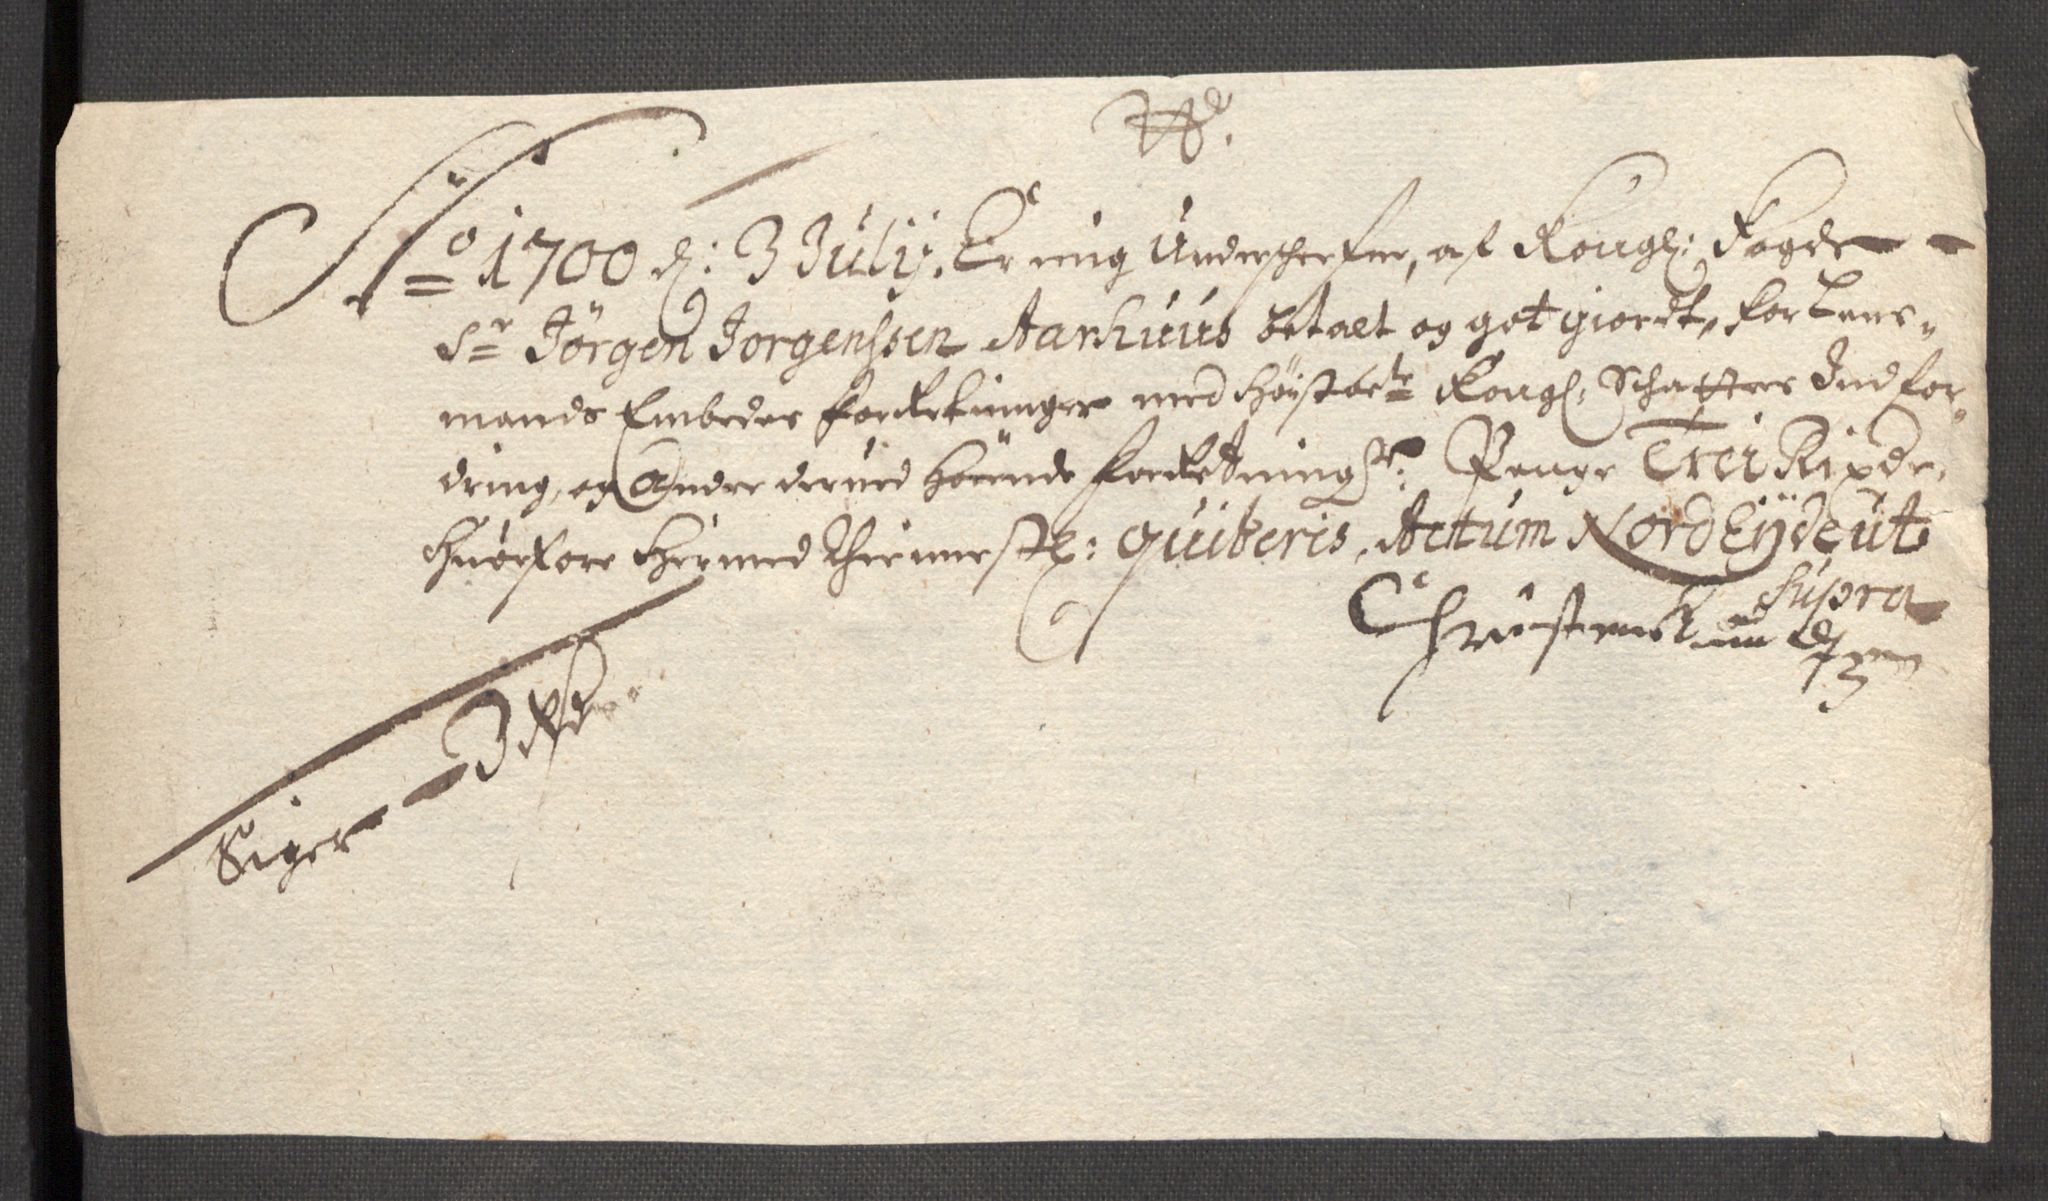 Ao 1700 d: 3 Julij. Er mig Underschrefne, af Kongl: Fogde
Sr Jörgen Jorgenssen Aarhuus betalt og got giordt, for Lens-
mands Embedes forretninger med Høistbete Kongl: Schatters Indfor-
dring, og Andre derved Hørende forretninger: Penge Trei Rixdr.
Huorfore Hermed thiennestl: quiteris, Actum NordEÿde ut
Supra
Siger 3 Rd